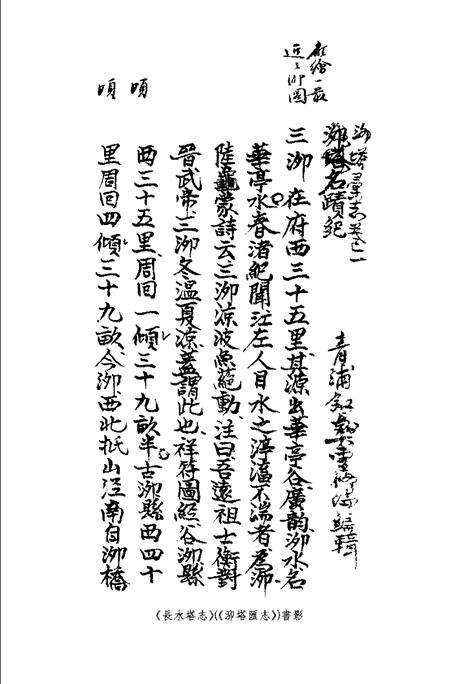 應繪一最
近之泖圖
泖塔彙志卷一
青浦
編輯
泖塔名蹟紀
三泖 在府西三十五里其源出華亭谷廣韵泖水名
華亭水春渚紀聞江左人目水之渟滀不湍者爲泖
陸龜蒙詩云三泖涼波魚動注曰吾遠祖士衡對
晉武帝三泖冬溫夏涼蓋謂此也祥符圖經谷泖縣
頃
西三十五里周回一傾三十九畝半古泖縣西四十
頃
里周回四傾三十九畝今泖西北抵山涇南自泖橋
《長水塔志》(《泖塔匯志》)書影